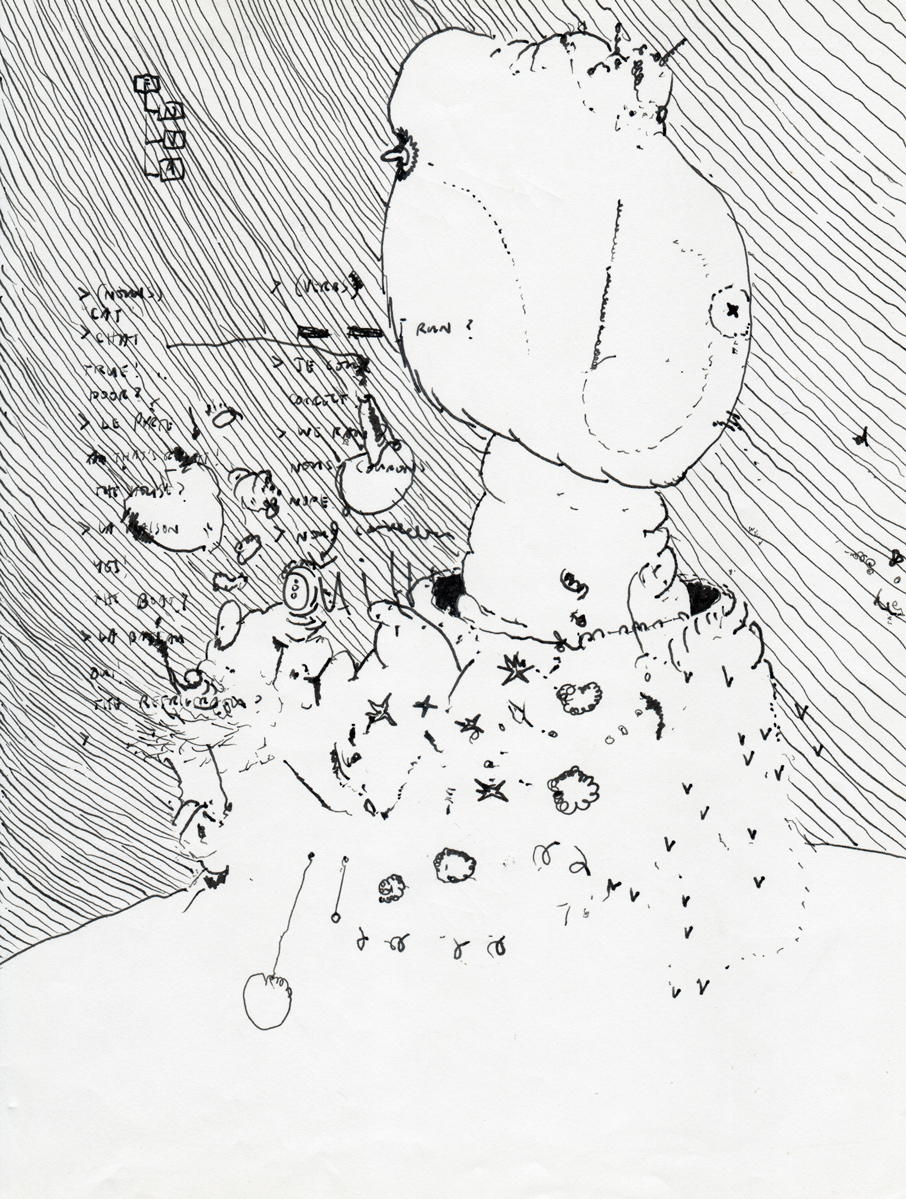 > (NOUNS)
CAT
> CHAT
TRUE!
DOOR?
> LE PORTE
NO THAT'S
THE HOUSE?
> LA MAISON
YES!
THE BOAT?
> LA
OUI
THE
>
> (VERBS)
RUN ?
> JE
CORRECT
> WE RAN
NOUS COURONS
MORE
> NOUS